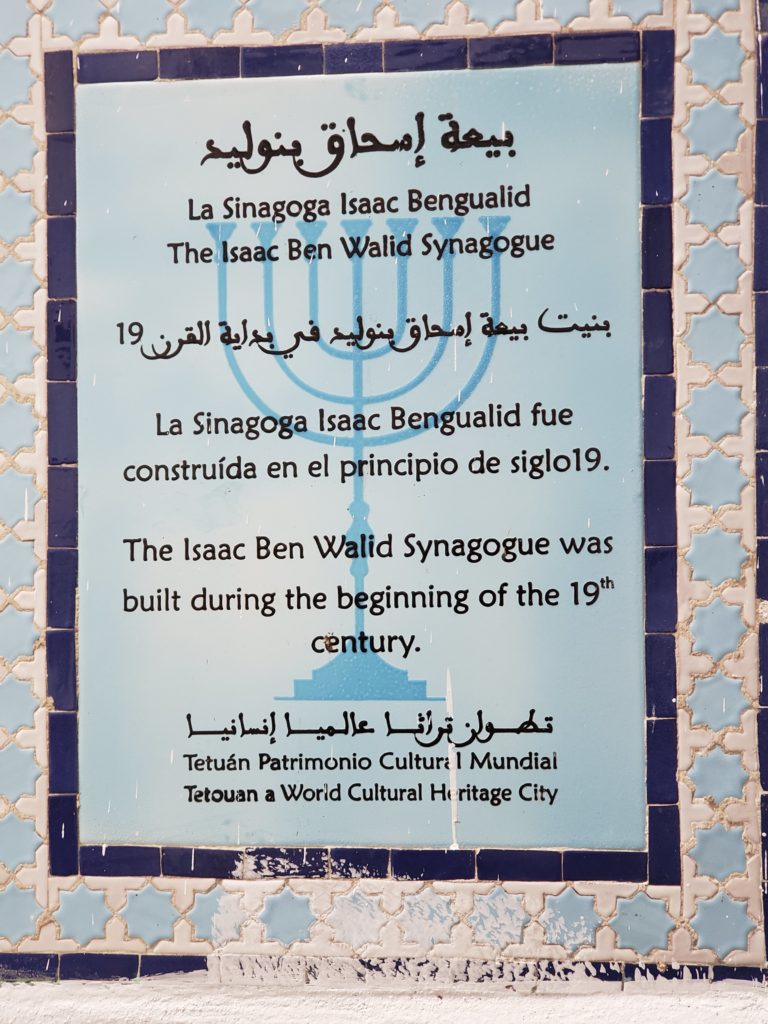 بيعة إسحاق بنوليد
La Sinagoga Isaac Bengualid
The Isaac Ben Walid Synagogue
بنيت بيعة إسحاق بنوليد في بداية القرن 19
La Sinagoga Isaac Bengualid fue
construída en el principio de siglo19.
The Isaac Ben Walid Synagogue was
built during the beginning of the 19th
century.
تطوان تراثا عالميا إنسانيا
Tetuán Patrimonio Cultural Mundial
Tetouan a World Cultural Heritage City